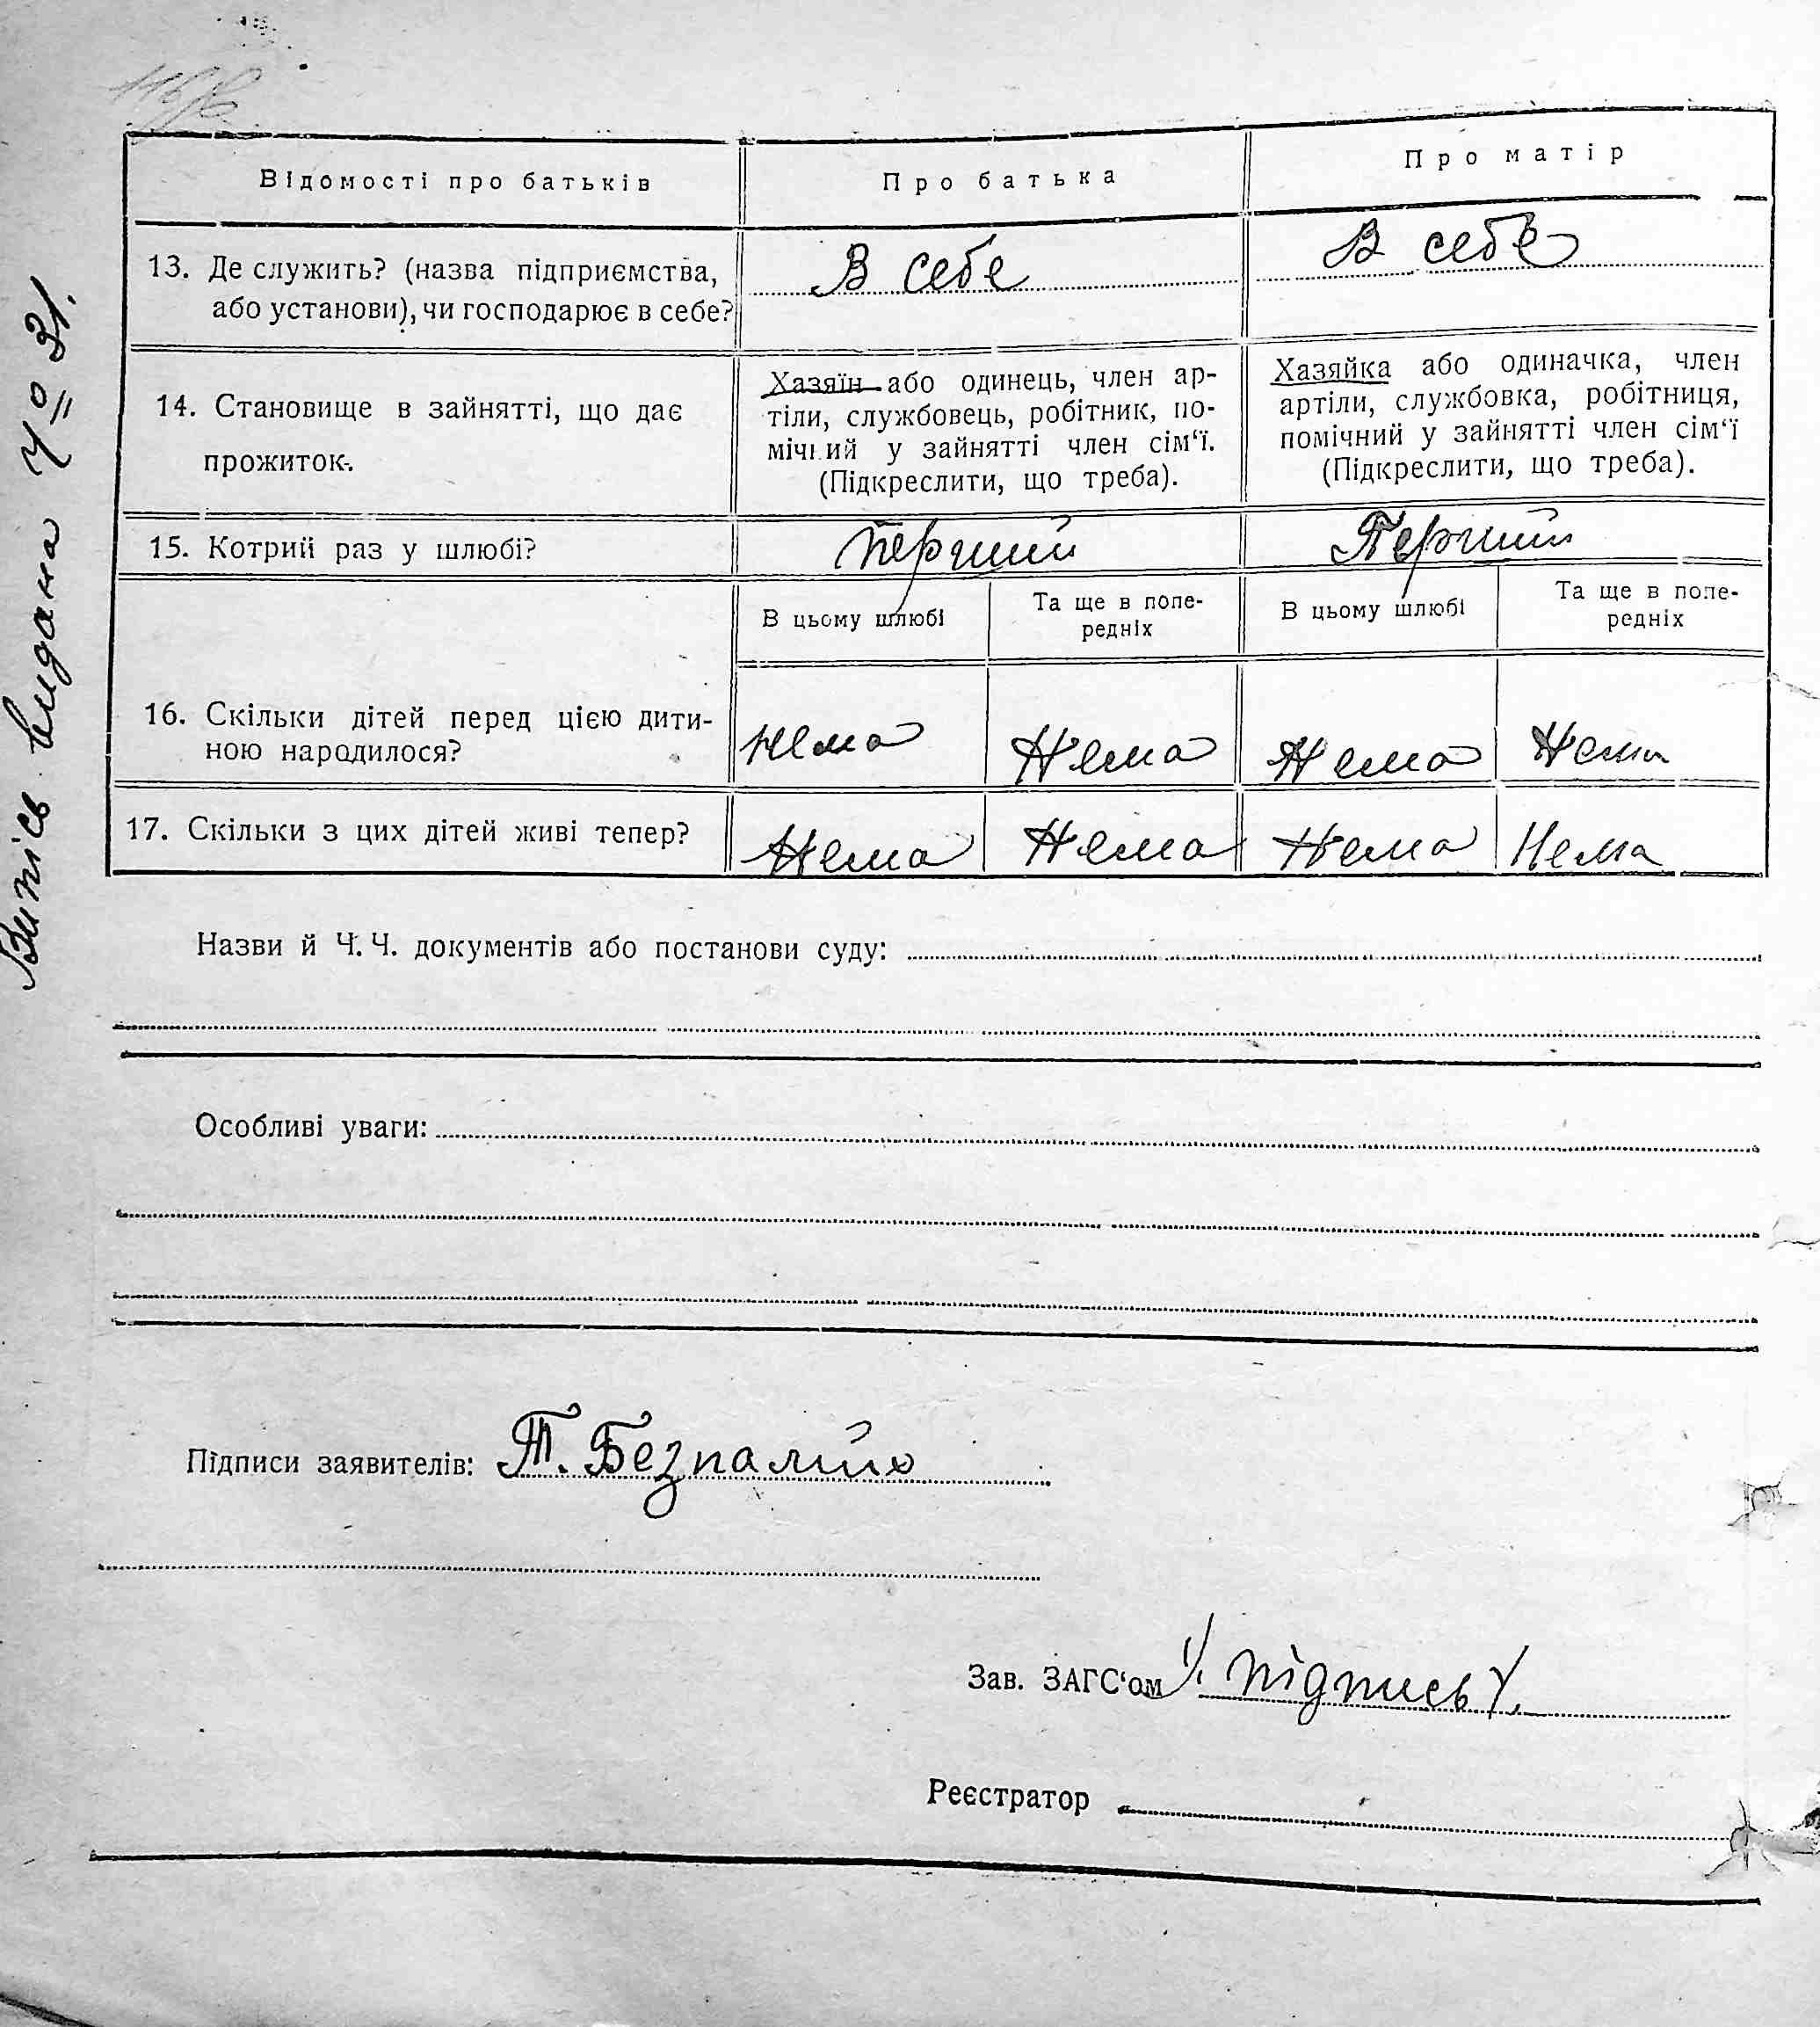 Відомості про батьків Про батька Про матір
13. Де служить? (назва підприємства, В себе В себе
або установи), чи господарює в себе?
14. Становище в зайнятті, що дає
прожиток.
Хазяїн або одинець, член ар-
тіли, службовець, робітник, по-
мічний у зайнятті член сім‘ї.
(Підкреслити, що треба).
Хазяйка або одиначка, член
артіли, службовка, робітниця,
помічний у зайнятті член сім‘ї
(Підкреслити, що треба).
15. Котрий раз у шлюбі? Перший Перший
В цьому шлюбі Та ще в попе- В цьому шлюбі Та ще в попе-
редніх редніх
16. Скільки дітей перед цією дити-
ною народилося? Нема Нема Нема Нема
17. Скільки з цих дітей живі тепер? Нема Нема Нема Нема
Назви й Ч. Ч. документів або постанови суду:
Особливі уваги:
Підписи заявителів: Т. Безпалий
Зав. ЗАГС‘ом /. підпись /.
Реєстратор
Випісь видана